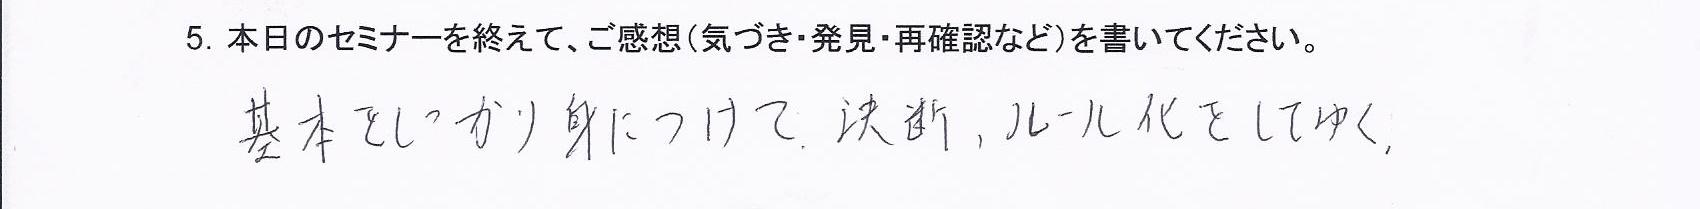 5. 本日のセミナーを終えて、ご感想(気づき・発見・再確認など)を書いてください。
基本をしっかり身につけて、決断、ルール化をしてゆく。